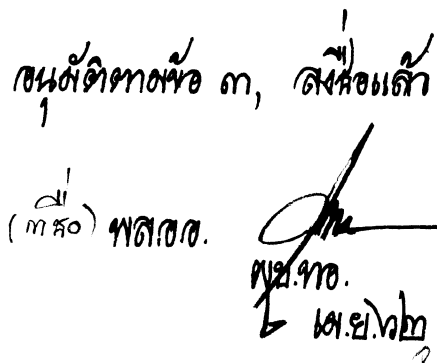 อนุมัติตามข้อ ๓, ลงชื่อแล้ว
(ลงชื่อ) พล.อ.อ.
ผบ.ทอ.
เม.ย.๖๒